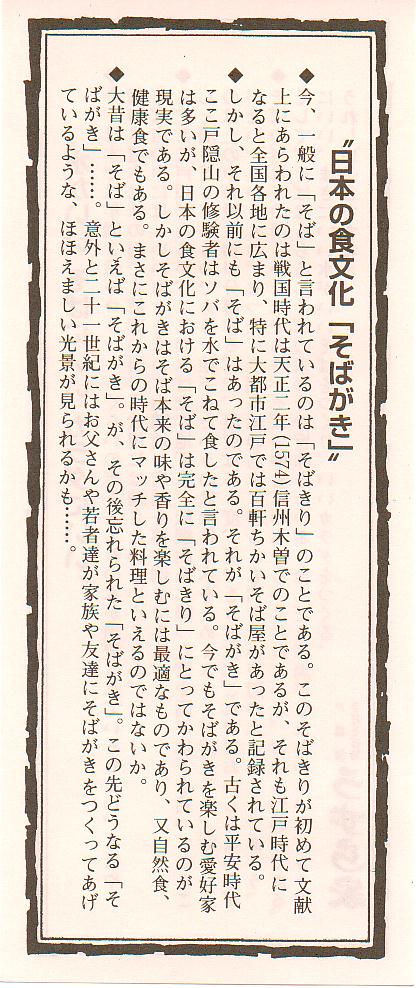 〝日本の食文化「そばがき」〟
◆今、一般に「そば」と言われているのは「そばきり」のことである。このそばきりが初めて文献
上にあらわれたのは戦国時代は天正二年(1574)信州木曽でのことであるが、それも江戸時代に
なると全国各地に広まり、特に大都市江戸では百軒ちかいそば屋があったと記録されている。
◆しかし、それ以前にも「そば」はあったのである。それが「そばがき」である。古くは平安時代
ここ戸隠山の修験者はソバを水でこねて食したと言われている。今でもそばがきを楽しむ愛好家
は多いが、日本の食文化における「そば」は完全に「そばきり」にとってかわられているのが
現実である。しかしそばがきはそば本来の味や香りを楽しむには最適なものであり、又自然食、
健康食でもある。まさにこれからの時代にマッチした料理といえるのではないか。
◆大昔は「そば」といえば「そばがき」。が、その後忘れられた「そばがき」。この先どうなる「そ
ばがき」……。意外と二十一世紀にはお父さんや若者達が家族や友達にそばがきをつくってあげ
ているような、ほほえましい光景が見られるかも……。